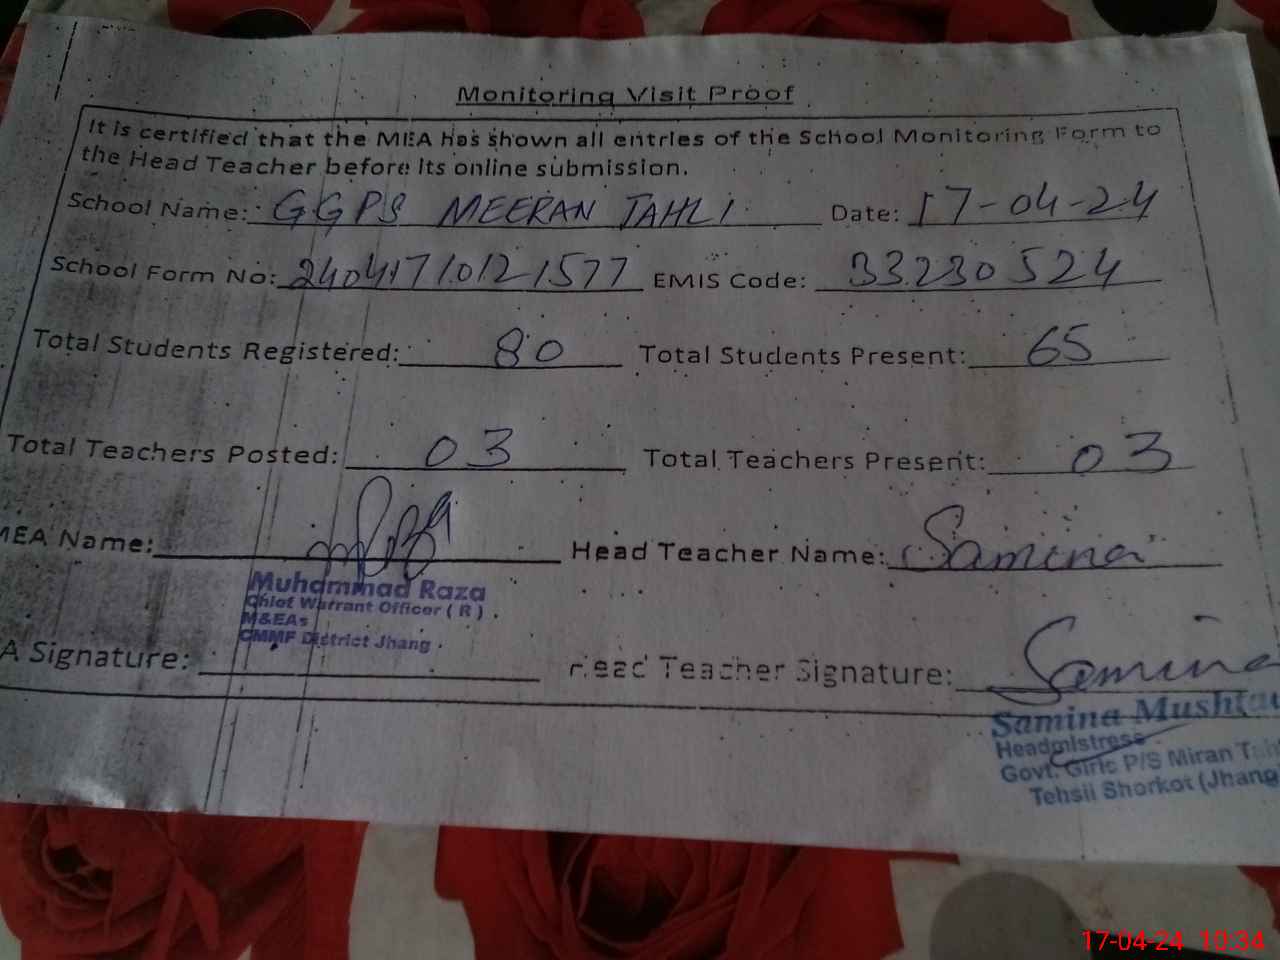 Monitoring Visit Proof
It is certified that the MEA has shown all entries of the School Monitoring Form to
the Head Teacher before its online submission.
School Name: GGPS MEERAN TAHLI Date: 17-04-24
School Form No: 24041710121577 EMIS Code: 33230524
Total Students Registered: 80 Total Students Present: 65
Total Teachers Posted: 03 Total Teachers Present: 03
MEA Name: Head Teacher Name: Samina
Muhammad Raza
Chief Warrant Officer ( R )
M&EAs
CMMF District Jhang
A Signature: Head Teacher Signature: Samina
Samina Mushtaq
Headmistress
Govt. Girls P/S Miran
Tehsil Shorkot (Jhang)
17-04-24 10:34